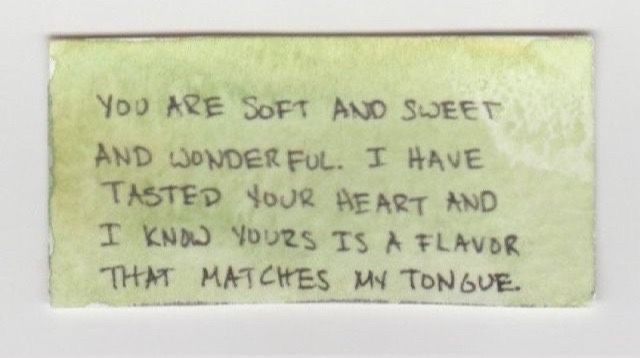 YOU ARE SOFT AND SWEET
AND WONDERFUL. I HAVE
TASTED YOUR HEART AND
I KNOW YOURS IS A FLAVOR
THAT MATCHES MY TONGUE.